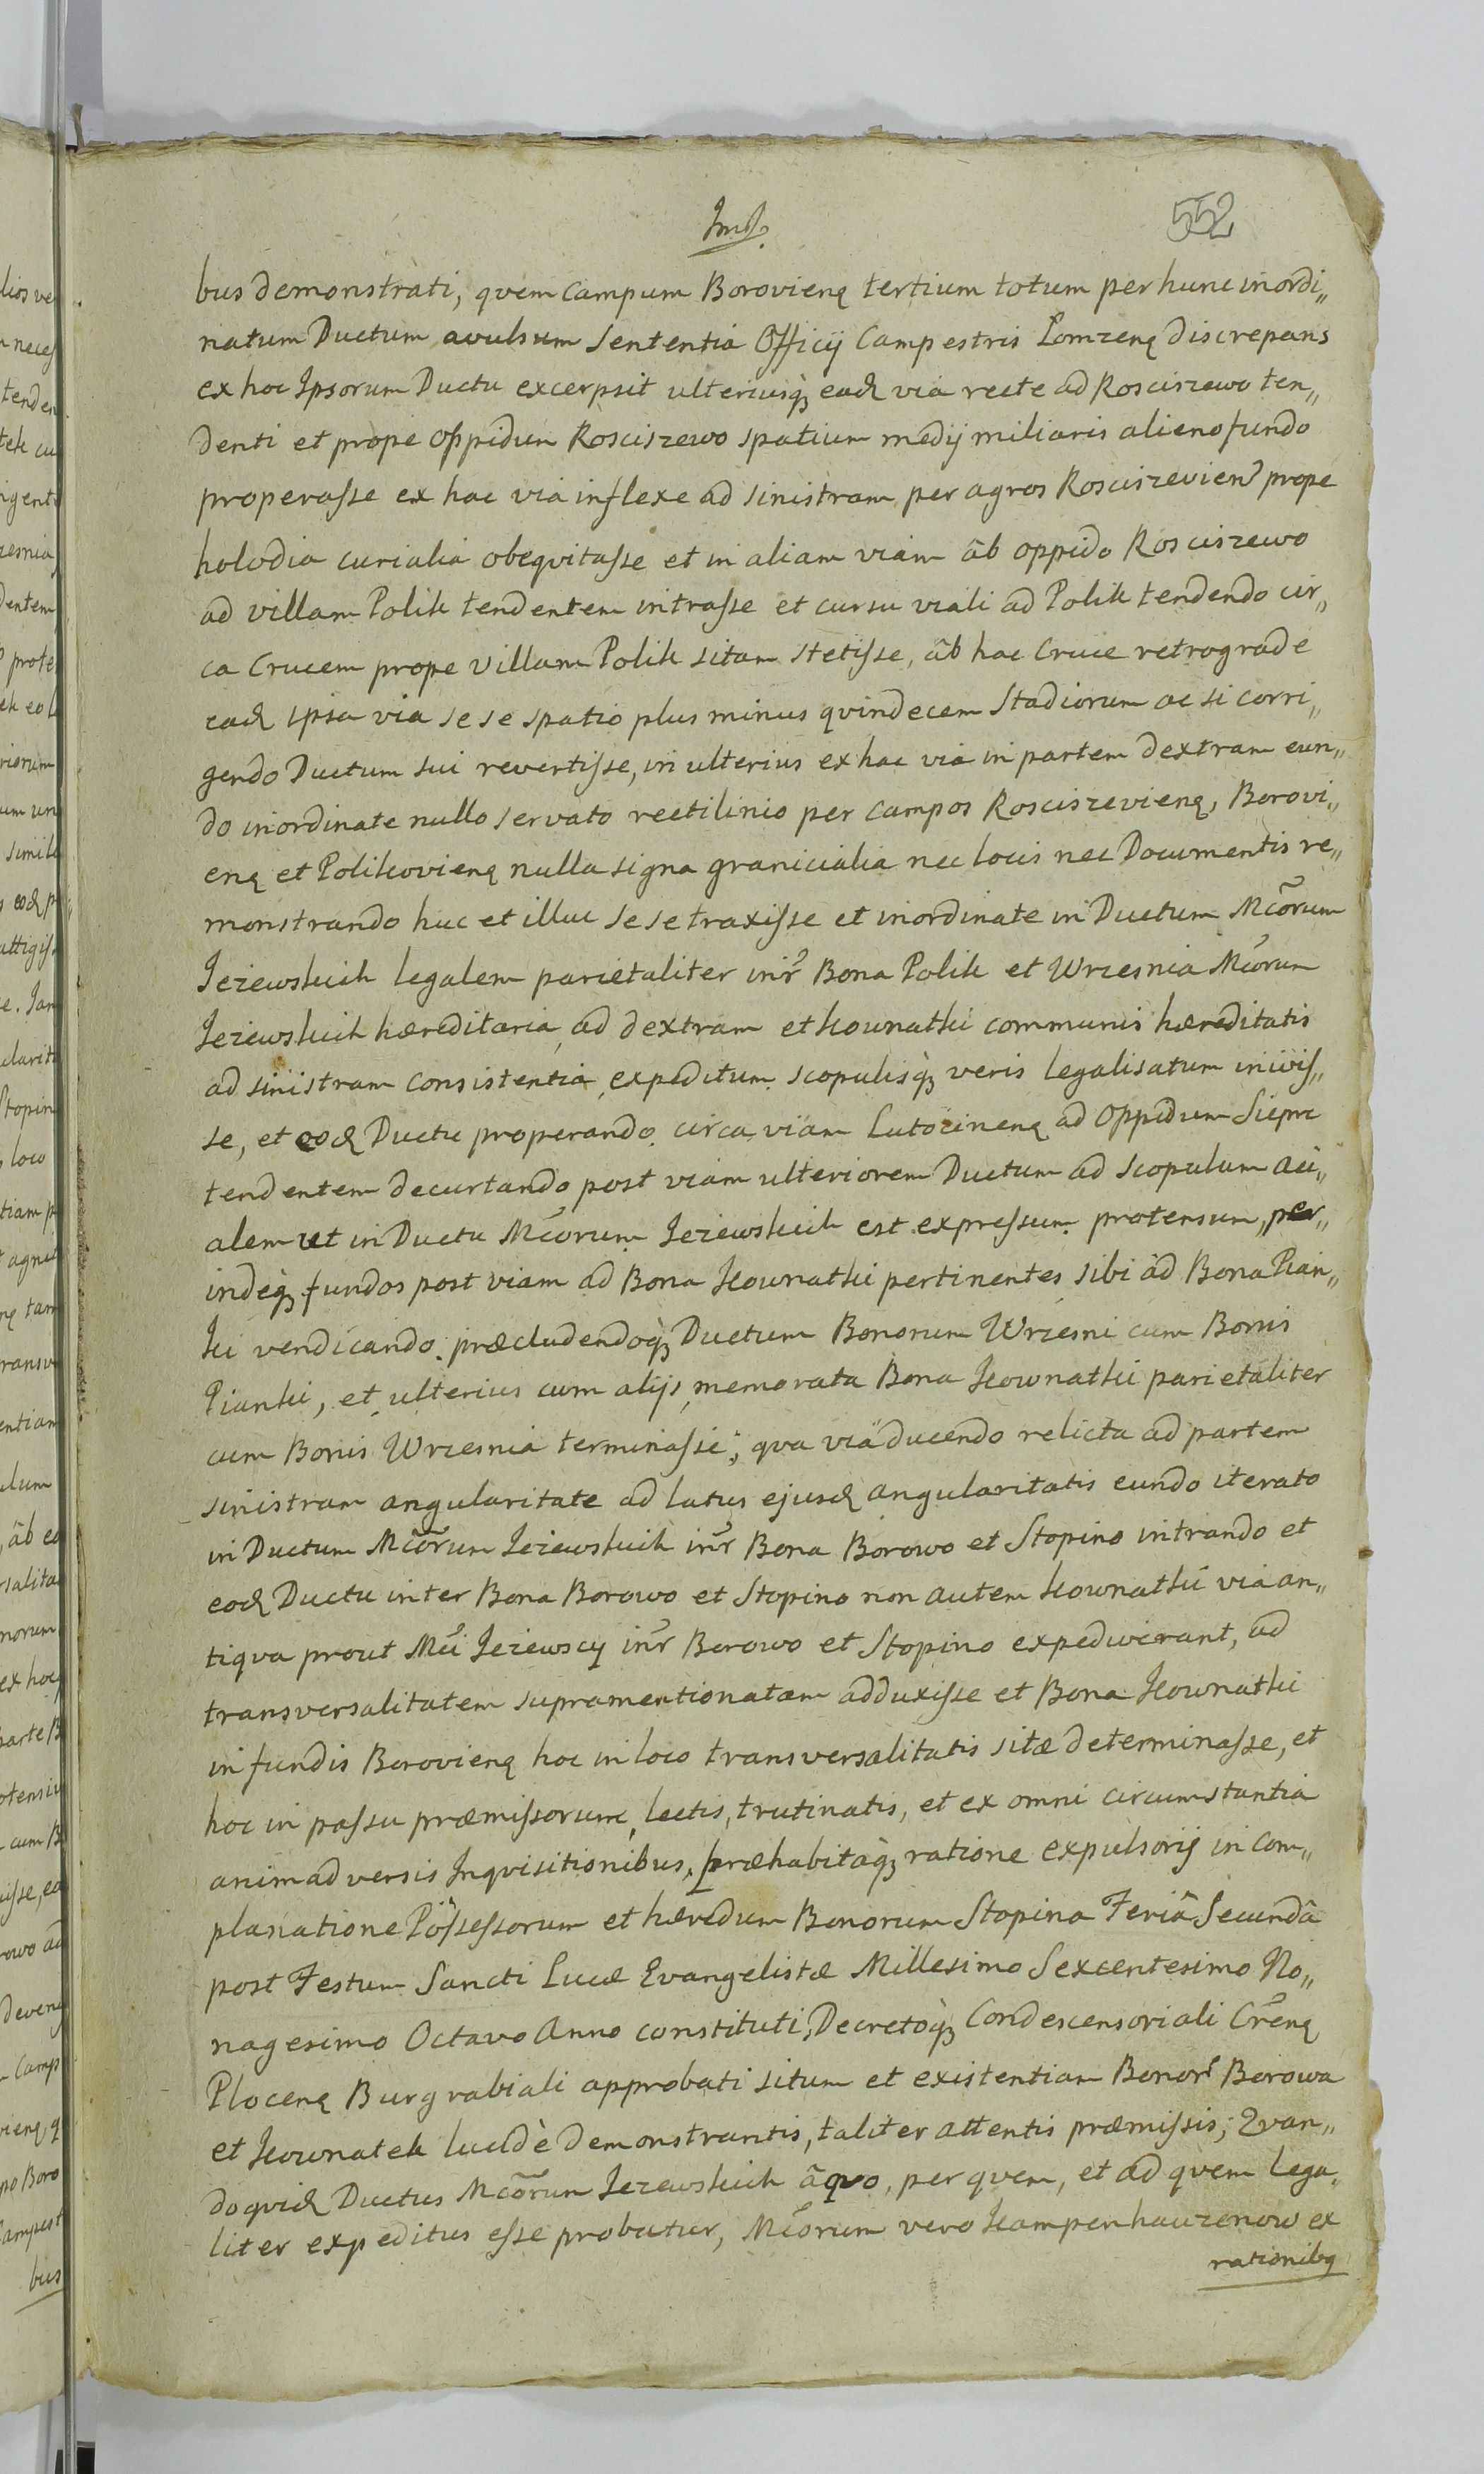 552
bus demonstrati, quem campum Borovienę tertium totum per hunc inordi„
natum Ductum avulsum Sententia Officij Campestris Łomzenę discrepans
ex hoc Ipsorum Ductu excerpsit ulteriusq̀ȝ eađ via recte ad Rosciszewo ten„
denti et prope oppidum Rosciszewo spatium medij miliaris alieno fundo
properasse ex hac via inflexe ad sinistram per agros Rosciszevien̉ prope
holodia curialia obequitasse et in aliam viam âb oppido Rosciszewo
ad villam Polik tendentem intrasse et cursu viali ad Polik tendendo cir„
ca Crucem prope villam Polik sitam stetisse, âb hac Cruce retrograde
eađ ipsa via sese spatio plus minus qvindecem Stadiorum ac si corri„
gendo Ductum sui revertisse, in ulterius ex hac via in partem dextram eun„
do inordinate nullo servato rectilinio per campos Rosciszevienę, Borovi„
enę et Polikovienę nulla signa granicialia nec locis nec Documentis re„
monstrando huc et illuc sese traxisse et inordinate in Ductum Mcõrum
Jezewskich legalem parietaliter int̉r Bona Polik et Wrzesnia Mcorum
Jezewskich hæreditaria ad dextram et Kownathi communis hæreditatis
ad sinistram consistentia expeditum scopulisq̀ȝ veris legalisatum inivis„
se, et eođ Ductu properando circa viam Lutocinenę ad oppidum Sieprc
tendentem decurtando post viam ulteriorem Ductum ad scopulum aci„
alem ut in Ductu Mcorum Jezewskich est expressum protensum, per„
indeq̀ȝ fundos post viam ad Bona Kownathi pertinentes sibi âd Bona Pian„
ki vendicando præcludendoq̀ȝ Ductum Bonorum Wrzesni cum Bonis
Pianki, et ulterius cum alijs memorata Bona Kownathi parietaliter
cum Bonis Wrzesnia terminasse, qva viâ ducendo relicta ad partem
sinistram angularitate ad latus ejusđ angularitatis eundo iterato
in Ductum Mcõrum Jezewskich int̉r Bona Borowo et Stopino intrando et
eođ Ductu inter Bona Borowo et Stopino non autem Kownathi via an„
tiqva prout Mci Jezewscy int̉r Borowo et Stopino expediverant, ad
transversalitatem supramentionatam adduxisse et Bona Kownathi
in fundis Borovienę hoc in loco transversalitatis sitæ determinasse, et
hoc in passu præmissorum, lectis, trutinatis, et ex omni circumstantia
animadversis Inqvisitionibus, præhabitaq̀ȝ ratione expulsorij in com„
planatione Possessorum et hæredum Bonorum Stopina Feriâ Secundâ
post Festum Sancti Lucæ Evangelistæ Millesimo Sexcentesimo No„
nagesimo Octavo Anno constituti, Decretoq̀ȝ Condescensoriali Crẽnę
Plocenę Burgrabiali approbati situm et existentiam Bonor̉ Borowa
et Kownatek lucidè demonstrantis, taliter attentis præmissis, Qvan„
doqviđ Ductus Mcõrum Jezewskich âqvo, per qvem, et ad qvem lega„
liter expeditus esse probatur, Mcorum vero Kampenhauzenow ex
rationibȝ